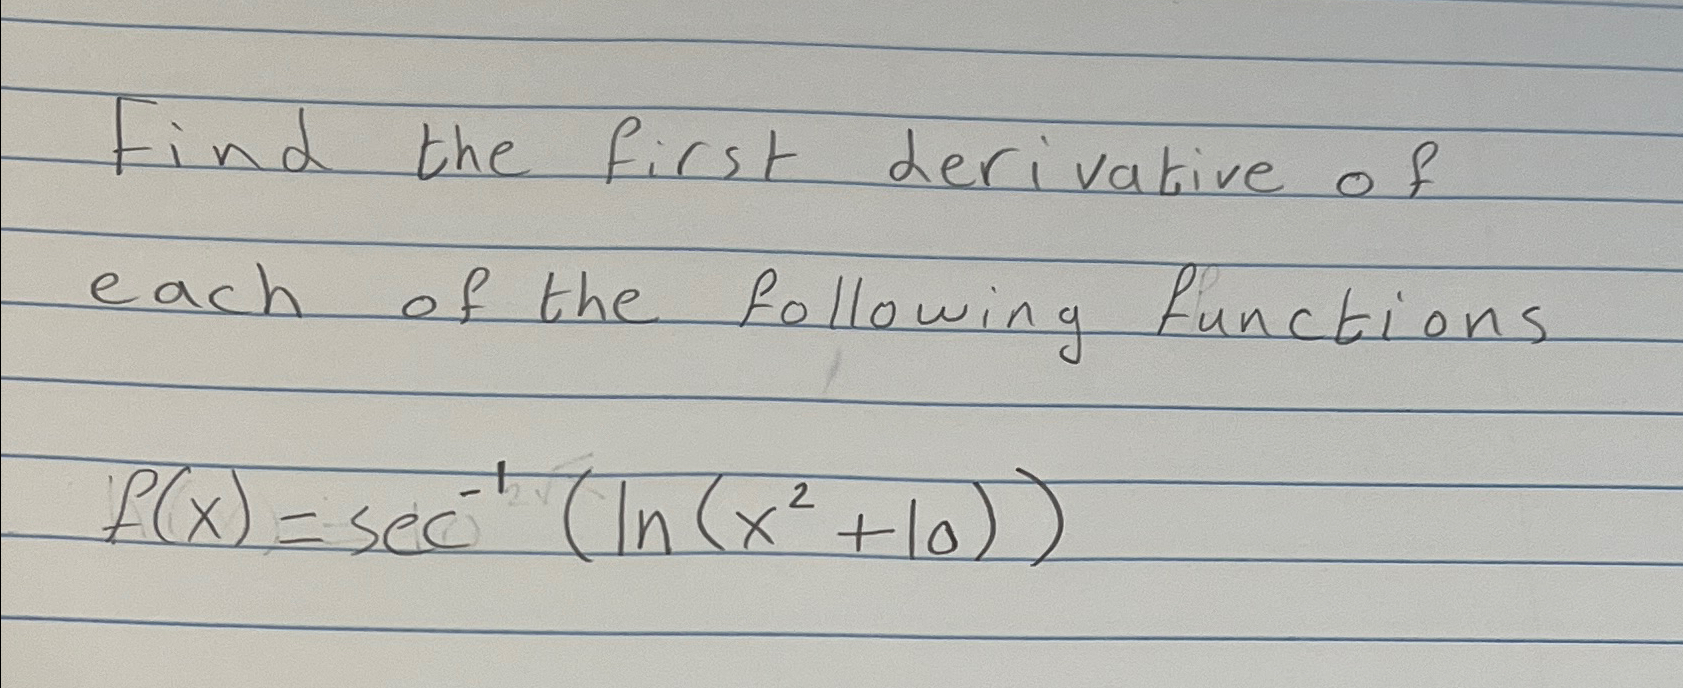 Find the first derivative of
each of the following functions
f(x) = sec⁻¹ (ln(x² + 10))